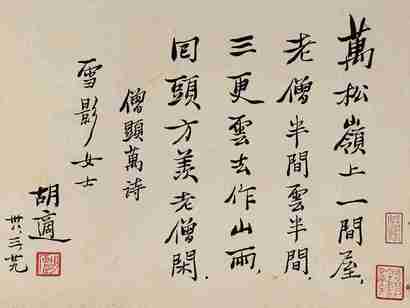 萬松嶺上一間屋.
老僧半間雲半間.
三更雲去作山雨,
回頭方羨老僧閑.
僧顯萬詩
雪影女士
胡適
卅八、三、廿九